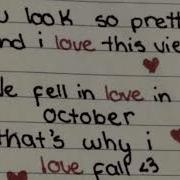 u look so prett
nd i love this vie
e fell in love in
october
that's why i
love fall <3